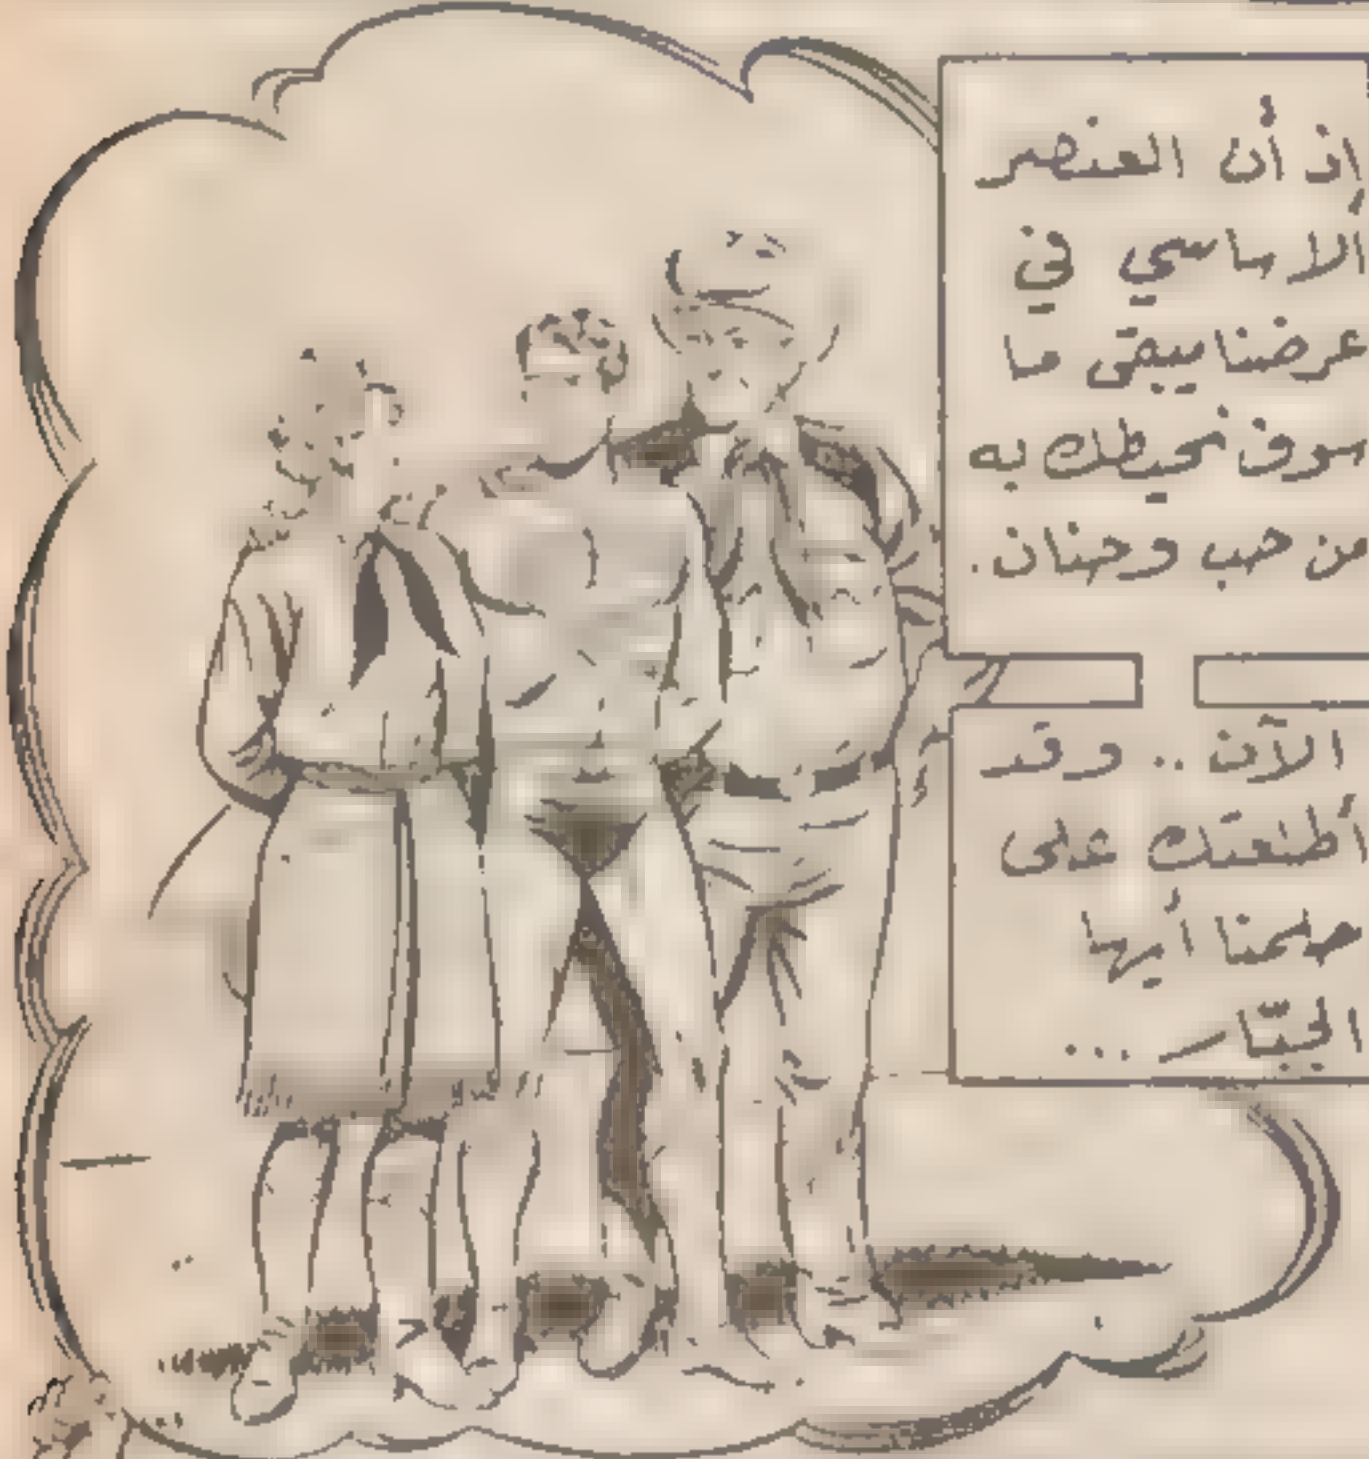 إذ أن العنصر
ألاساسي في
عرضنا يبقى ما
سوف نحيطك به
من حب وحنان.
الآن .. وقد
أطلعتك على
حلمنا أيها
الجبّار ...